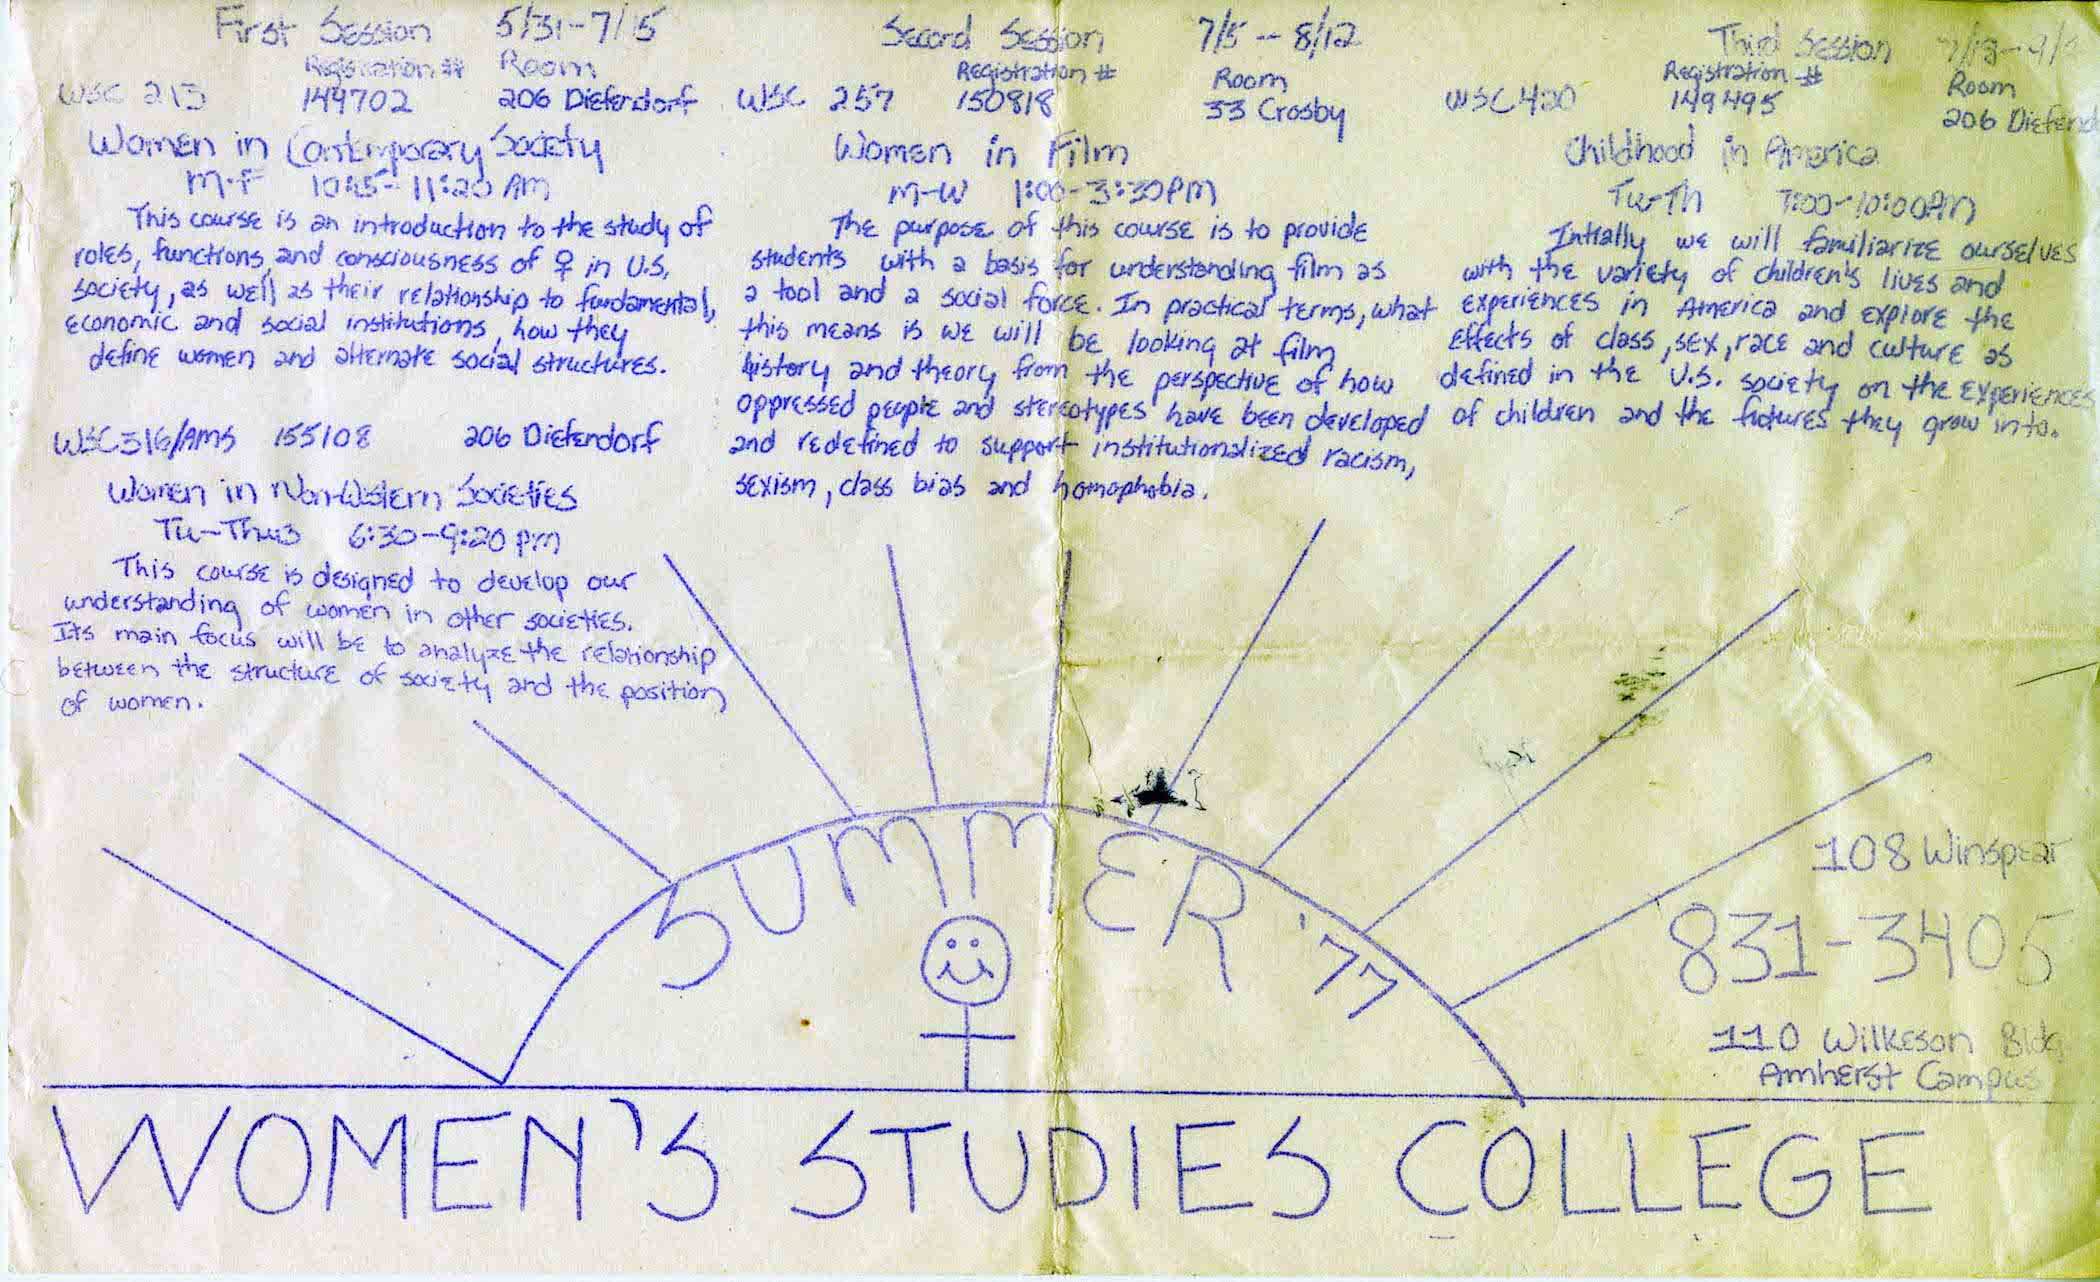 First Session 5/31-7/15
Registration # Room
WSC 213 149702 206 Diefendorf
Women in Contemporary Society
M-F 10:15-11:20 AM
This course is an introduction to the study of
roles, functions, and consciousness of ♀ in U.S.
society, as well as their relationship to fundamental,
economic and social institutions, how they
define women and alternate social structures.
WSC316/AMS 155108 206 Diefendorf
Women in Non-Western Societies
Tu-Thurs 6:30-9:20 pm
This course is designed to develop our
understanding of women in other societies.
Its main focus will be to analyze the relationship
between the structure of society and the position
of women.
Second Session 7/5 -- 8/12
Registration # Room
WSC 257 150818 33 Crosby
Women in Film
M-W 1:00-3:30PM
The purpose of this course is to provide
students with a basis for understanding film as
a tool and a social force. In practical terms, what
this means is we will be looking at film
history and theory from the perspective of how
oppressed people and stereotypes have been developed
and redefined to support institutionalized racism,
sexism, class bias and homophobia.
Third Session 7/18-
Registration # Room
WSC420 149495 206 Diefend
Childhood in America
Tu-Th 7:00-10:00PM
Intially we will familiarize ourselves
with the variety of children's lives and
experiences in America and explore the
effects of class, sex, race and culture as
defined in the U.S. society on the experiences
of children and the futures they grow into.
SUMMER '77
108 Winspear
831-3405
110 Wilkeson Bldg
Amherst Campus
WOMEN'S STUDIES COLLEGE